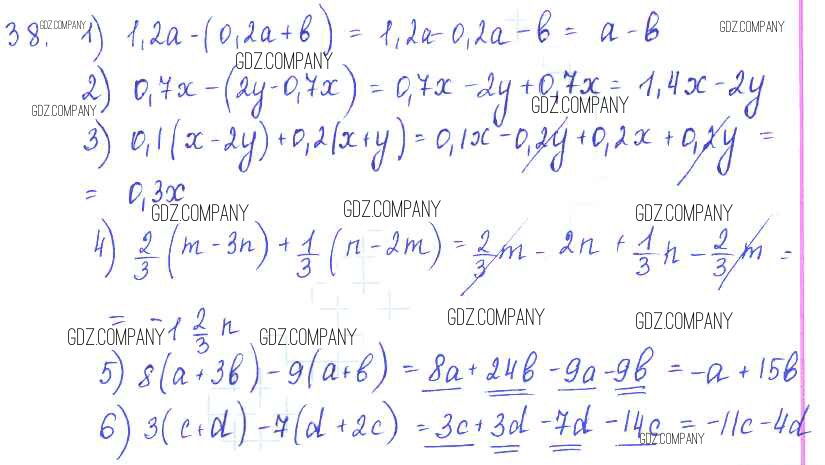 38. 1) 1,2a - (0,2a + b) = 1,2a - 0,2a - b = a - b
2) 0,7x - (2y - 0,7x) = 0,7x - 2y + 0,7x = 1,4x - 2y
3) 0,1(x - 2y) + 0,2(x + y) = 0,1x - 0,2y + 0,2x + 0,2y =
= 0,3x
4) 2/3 (m - 3n) + 1/3 (n - 2m) = 2/3 m - 2n + 1/3 n - 2/3 m =
= -1 2/3 n
5) 8(a + 3b) - 9(a + b) = 8a + 24b - 9a - 9b = -a + 15b
6) 3(c + d) - 7(d + 2c) = 3c + 3d - 7d - 14c = -11c - 4d
GDZ.COMPANY
GDZ.COMPANY
GDZ.COMPANY
GDZ.COMPANY
GDZ.COMPANY
GDZ.COMPANY
GDZ.COMPANY
GDZ.COMPANY
GDZ.COMPANY
GDZ.COMPANY
GDZ.COMPANY
GDZ.COMPANY
GDZ.COMPANY